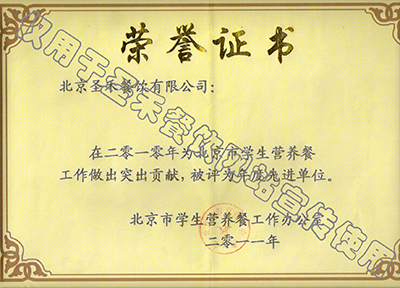 荣誉证书
北京圣禾餐饮有限公司：
在二零一零年为北京市学生营养餐
工作做出突出贡献，被评为年度先进单位。
北京市学生营养餐工作办公室
二零一一年
仅用于圣禾餐饮网站宣传使用